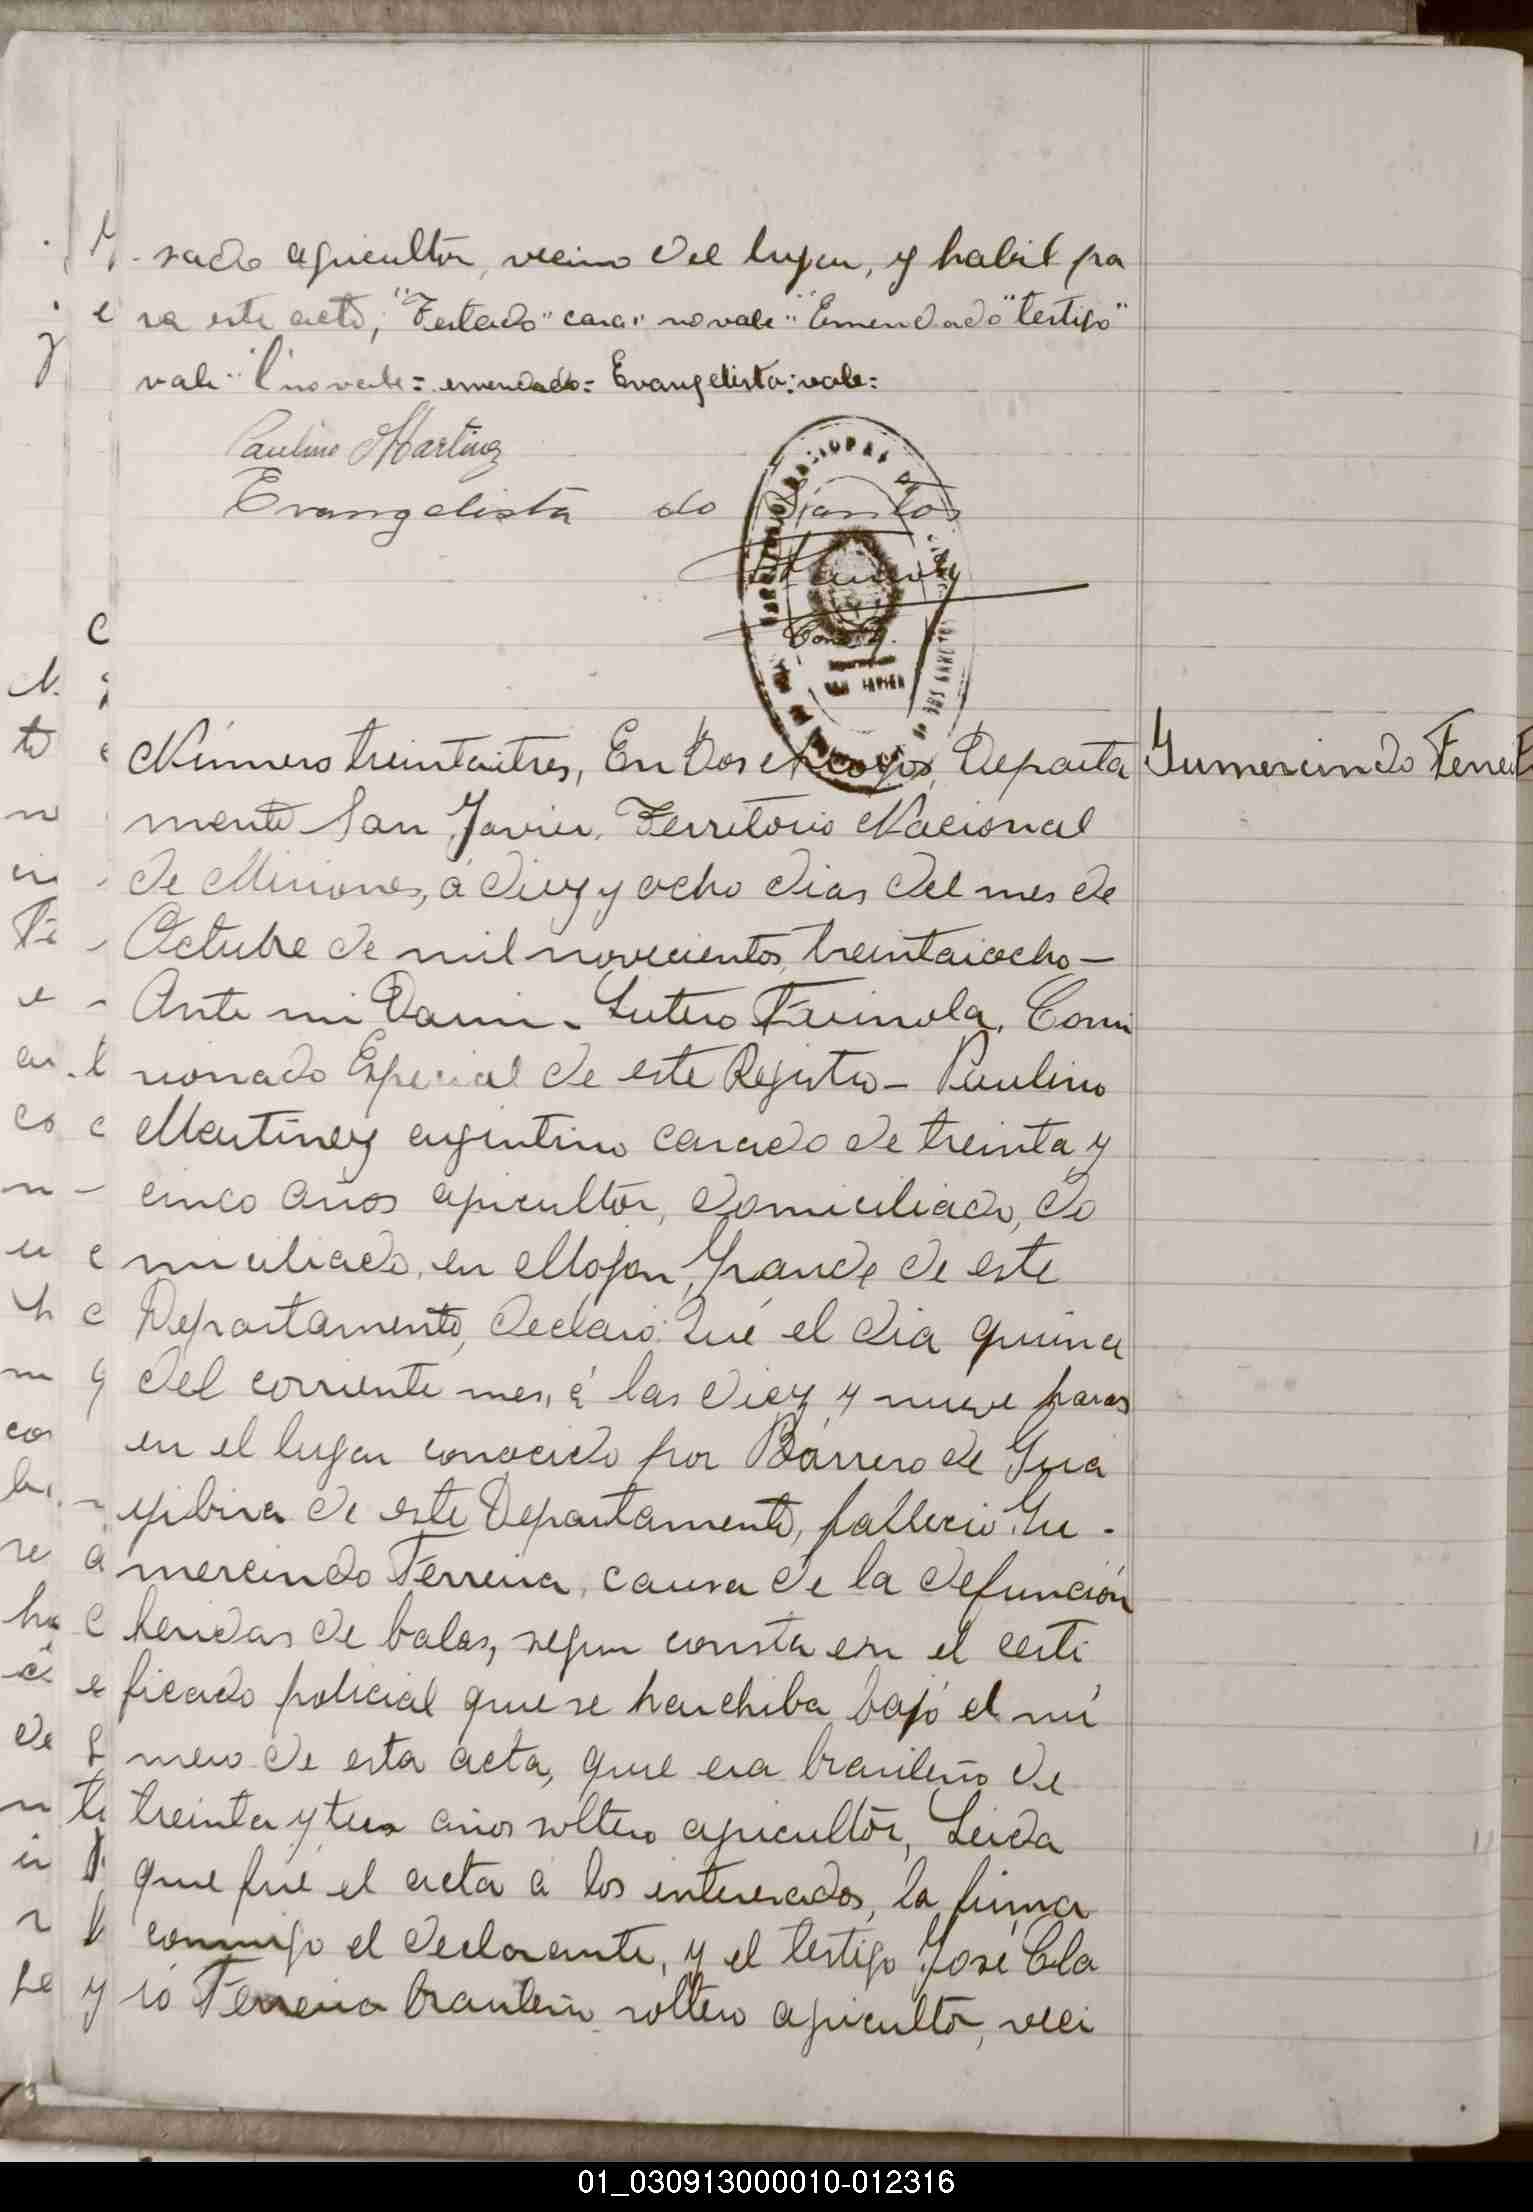 sado agricultor, vecino del lugar, y habil pa
ra este acto, "Testado" casa" no vale" Emendado "testigo"
vale" l no vale= emendado= Evangelista: vale=
Paulino Martinez
Evangelista do Santos
SAN JAVIER
Número treintaitres, En Dos Arroyos, Departa
Gumersindo Ferreira
mento San Javier, Territorio Nacional
de Misiones, á diez y ocho dias del mes de
Octubre de mil novecientos treintaiocho—
Ante mi Lutero Comi
sionado Especial de este Registro— Paulino
Martínez argentino casado de treinta y
cinco años agricultor, domiciliado, do
miciliado, en Mojon Grande de este
Departamento, declaró: Qué el dia quince
del corriente mes, á las diez y nueve horas
en el lugar conocido por Barrero de Gua
yibira de este Departamento, falleció Gu-
mersindo Ferreira, causa de la defunción
heridas de balas, segun consta en el certi
ficado policial que se harchiba bajó el nú
mero de esta acta, que era brasileño de
treinta y tres años soltero agricultor, Leida
que fué el acta á los interesados, la firma
conmigo el declarante, y el testigo José Cla
ró Ferreira brasileño soltero agricultor, veci
01_030913000010-012316